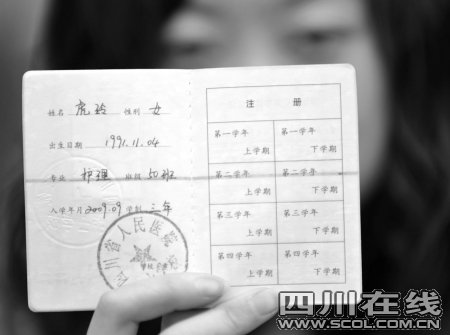 姓名 虎玲 性别 女
出生日期 1991.11.04
专业 护理 班级 50班
入学年月 2009.09 学制 三年
四川省人民医院
学校
注 册
第一学年 上学期
第一学年 下学期
第二学年 上学期
第二学年 下学期
第三学年 上学期
第三学年 下学期
第四学年 上学期
第四学年 下学期
四川在线
WWW.SCOL.COM.CN